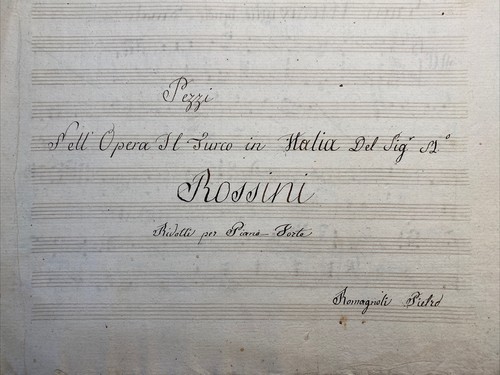 Pezzi
Nell' Opera Il Turco in Italia Del Sig.r M.o
Rossini
Ridotti per Piano-Forte
Romagnoli Pietro